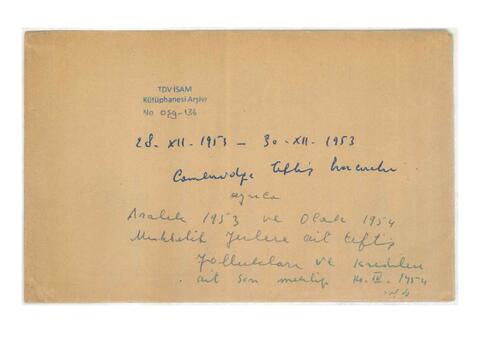 TDV İSAM
Kütüphanesi Arşivi
No OŞg-136
28. XII. 1953 – 30. XII. 1953
Cambridge teftiş
ayrıca
Aralık 1953 ve Ocak 1954
Muhtelif yerlere ait teftiş
yollukları ve
ait son mektup 14. IV. 1954